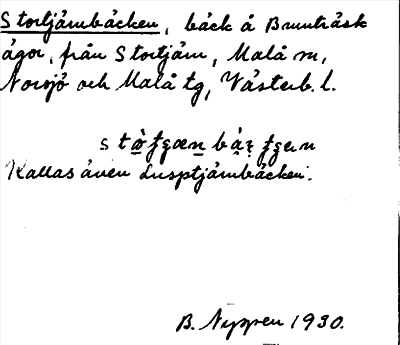 Stortjärnbäcken, bäck å Brunträsk
ägor, från Stortjärn, Malå sn,
Norsjö och Malå tg, Västerb. l.
Kallas även Lusptjärnbäcken.
B. Nyppen 1930.